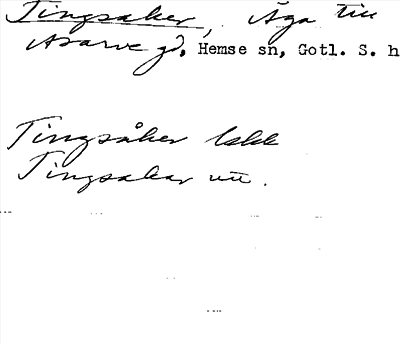 Tingsaker, Äga till
Asarve gd, Hemse sn, Gotl. S. h
Tingsåker Iskk
Tingsakar uu.